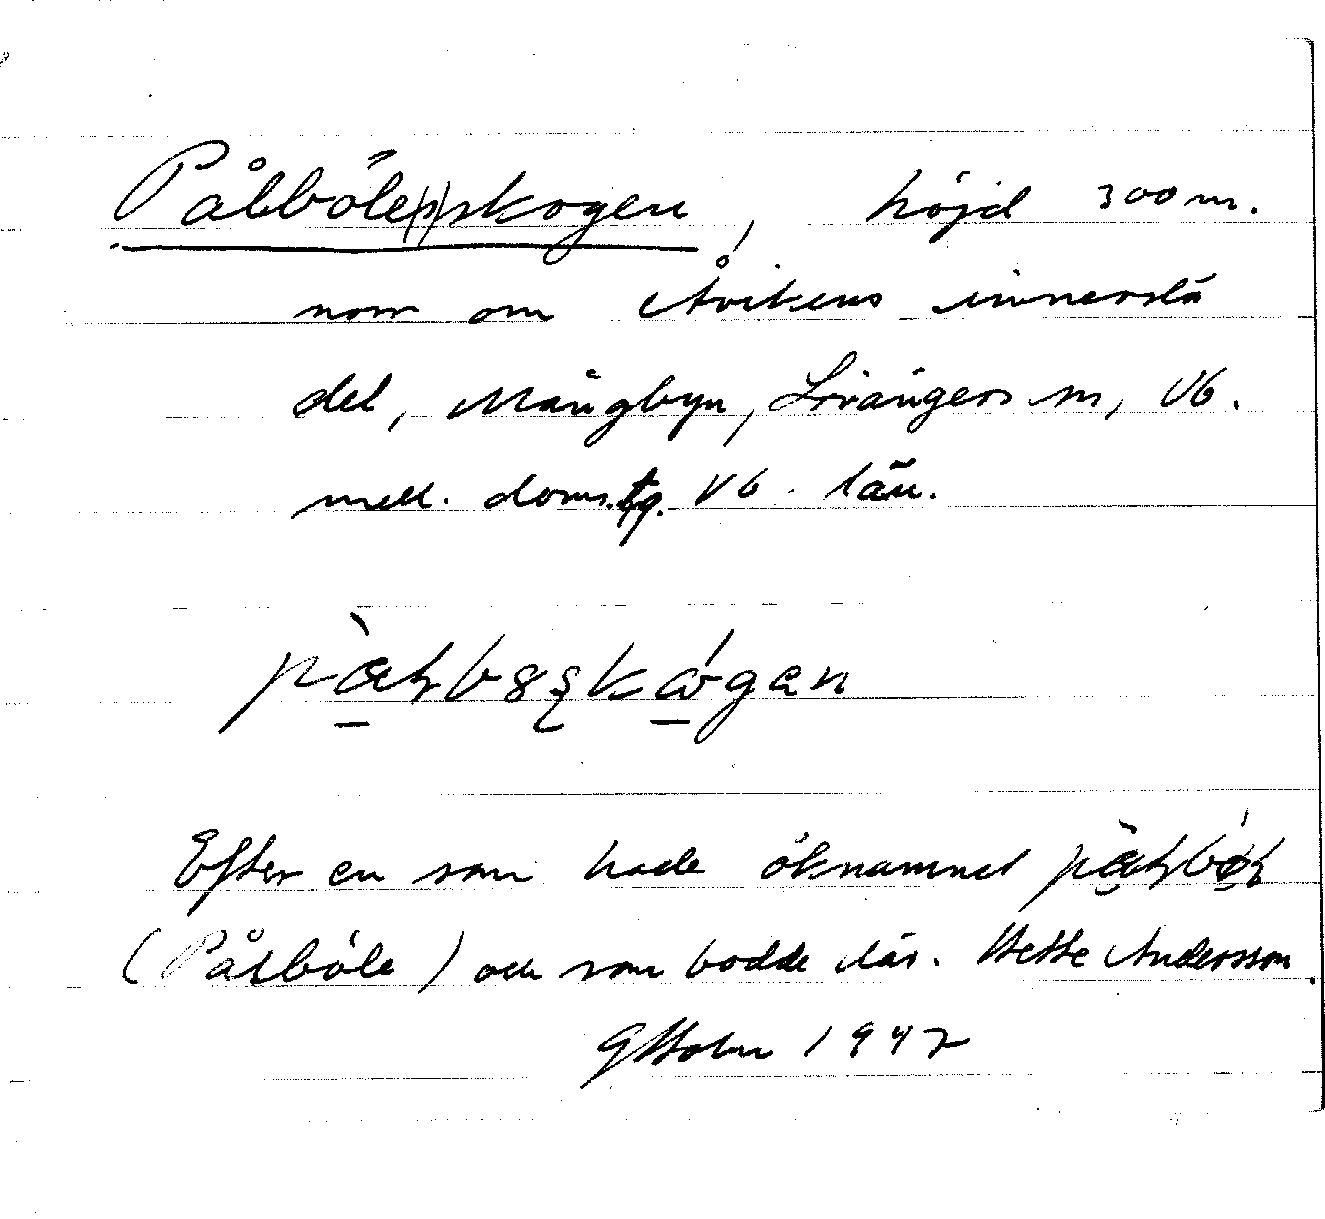 Pålböle(s)skogen, höjd 300 m.
norr om Åvikens innersta
del, Mångbyn, Lövångers sn, Vb.
mell. doms.tg. Vb. län.
Efter en som hade öknamnet
(Pålböle) och som bodde där. Andersson.
GHolm 1947